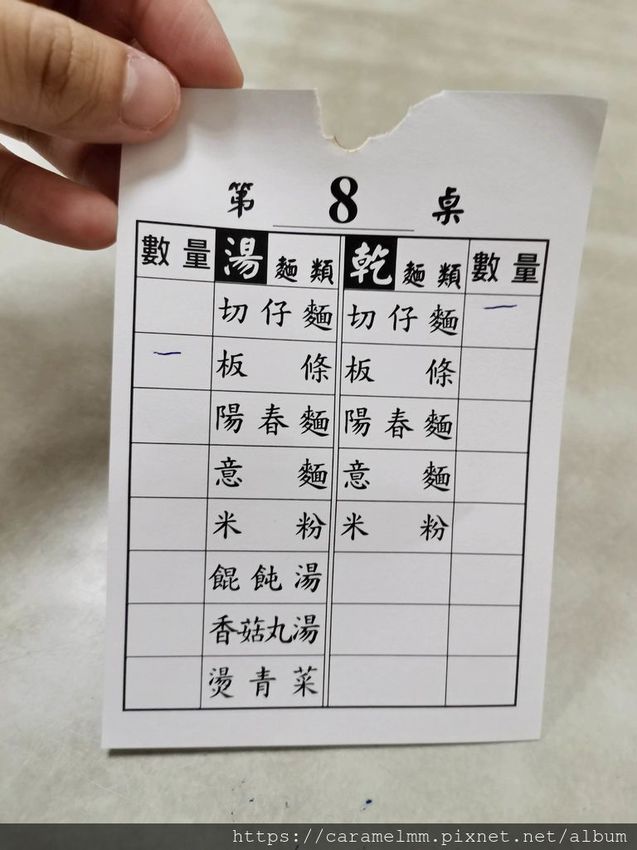 第 8 桌
數量 湯麵類 乾麵類 數量
切仔麵 切仔麵 一
一 板條 板條
陽春麵 陽春麵
意麵 意麵
米粉 米粉
餛飩湯
香菇丸湯
燙青菜
https://caramelmm.pixnet.net/album